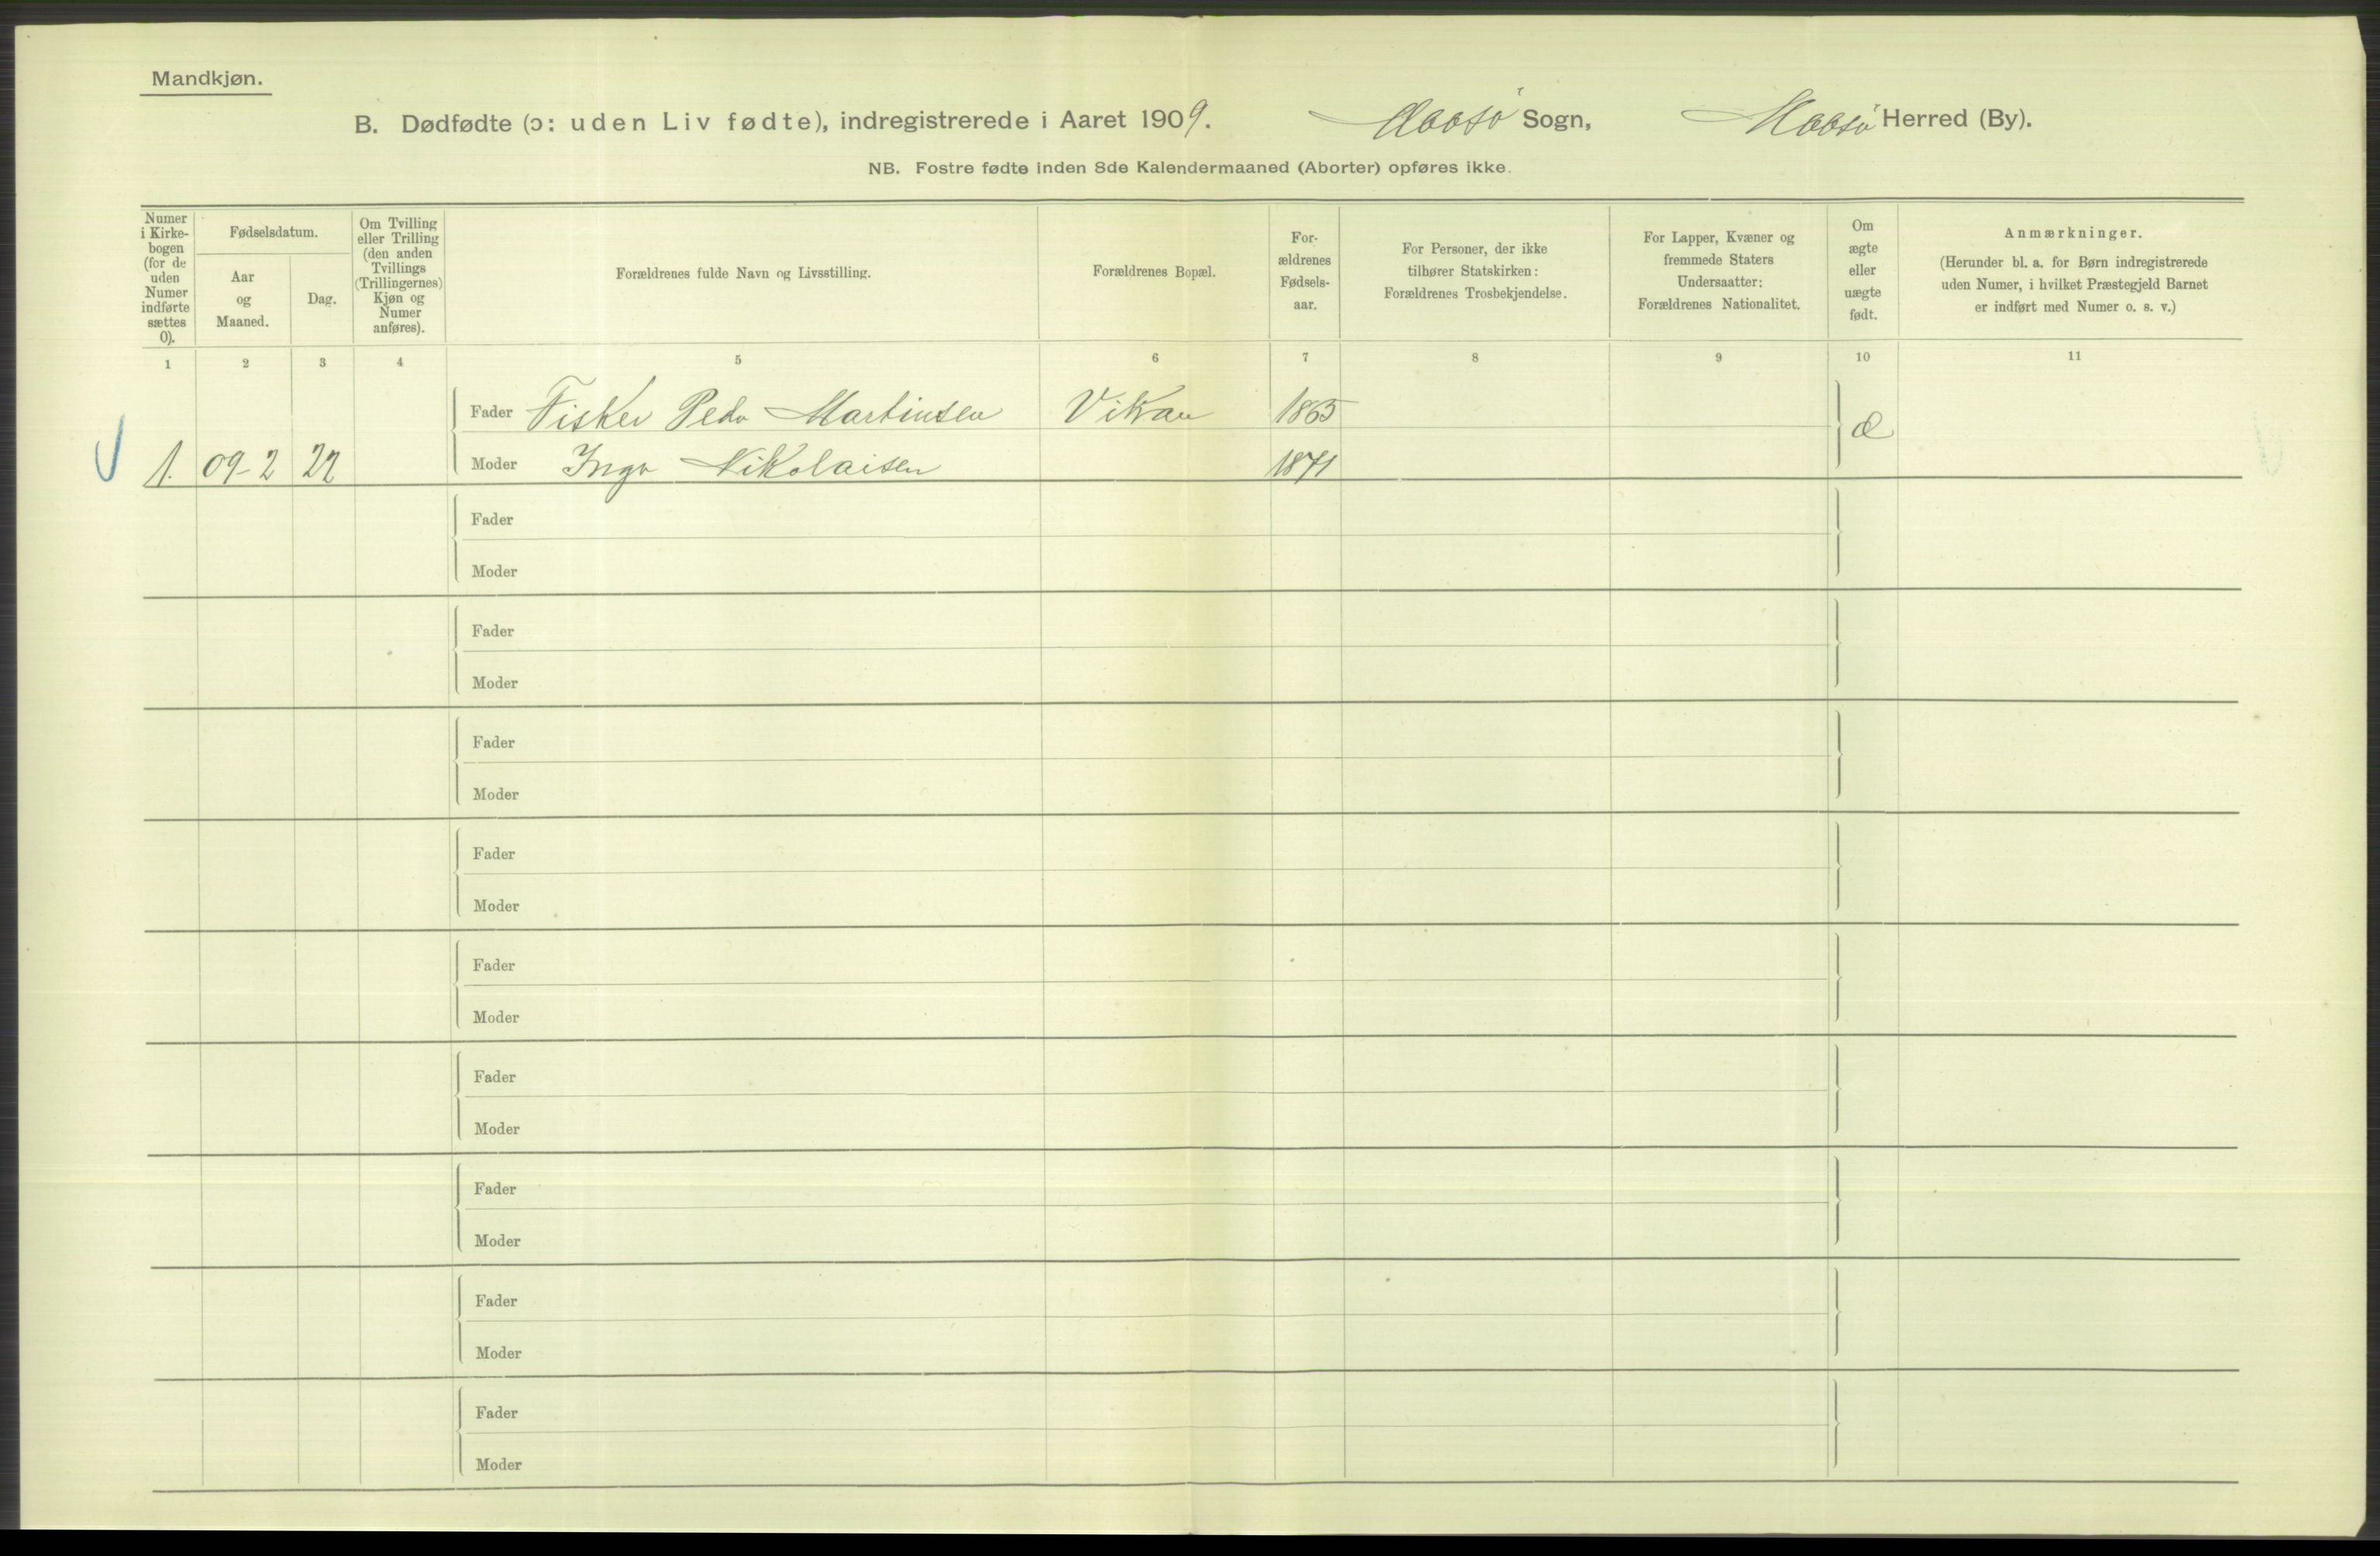 Mandkjøn.
B. Dødfødte (ɔ: uden Liv fødte), indregistrerede i Aaret 1909. Maasø Sogn, Maasø Herred (By).
NB. Fostre fødte inden 8de Kalendermaaned (Aborter) opføres ikke.
Numer
i Kirke-
bogen
(for de
uden
Numer
indførte
sættes
0).
Fødselsdatum.
Aar
og
Maaned.
Dag.
Om Tvilling
eller Trilling
(den anden
Tvillings
(Trillingernes)
Kjøn og
Numer
anføres).
Forældrenes fulde Navn og Livsstilling.
Forældrenes Bopæl.
For-
ældrenes
Fødsels-
aar.
For Personer, der ikke
tilhører Statskirken:
Forældrenes Trosbekjendelse.
For Lapper, Kvæner og
fremmede Staters
Undersaatter:
Forældrenes Nationalitet.
Om
ægte
eller
uægte
født.
Anmærkninger.
(Herunder bl. a. for Børn indregistrerede
uden Numer, i hvilket Præstegjeld Barnet
er indført med Numer o. s. v.)
1 2 3 4 5 6 7 8 9 10 11
Fader Fisker Peder Martinsen Vikan 1865 æ
1. 09-2 22 Moder Inga Nikolaisen 1871
Fader
Moder
Fader
Moder
Fader
Moder
Fader
Moder
Fader
Moder
Fader
Moder
Fader
Moder
Fader
Moder
Fader
Moder